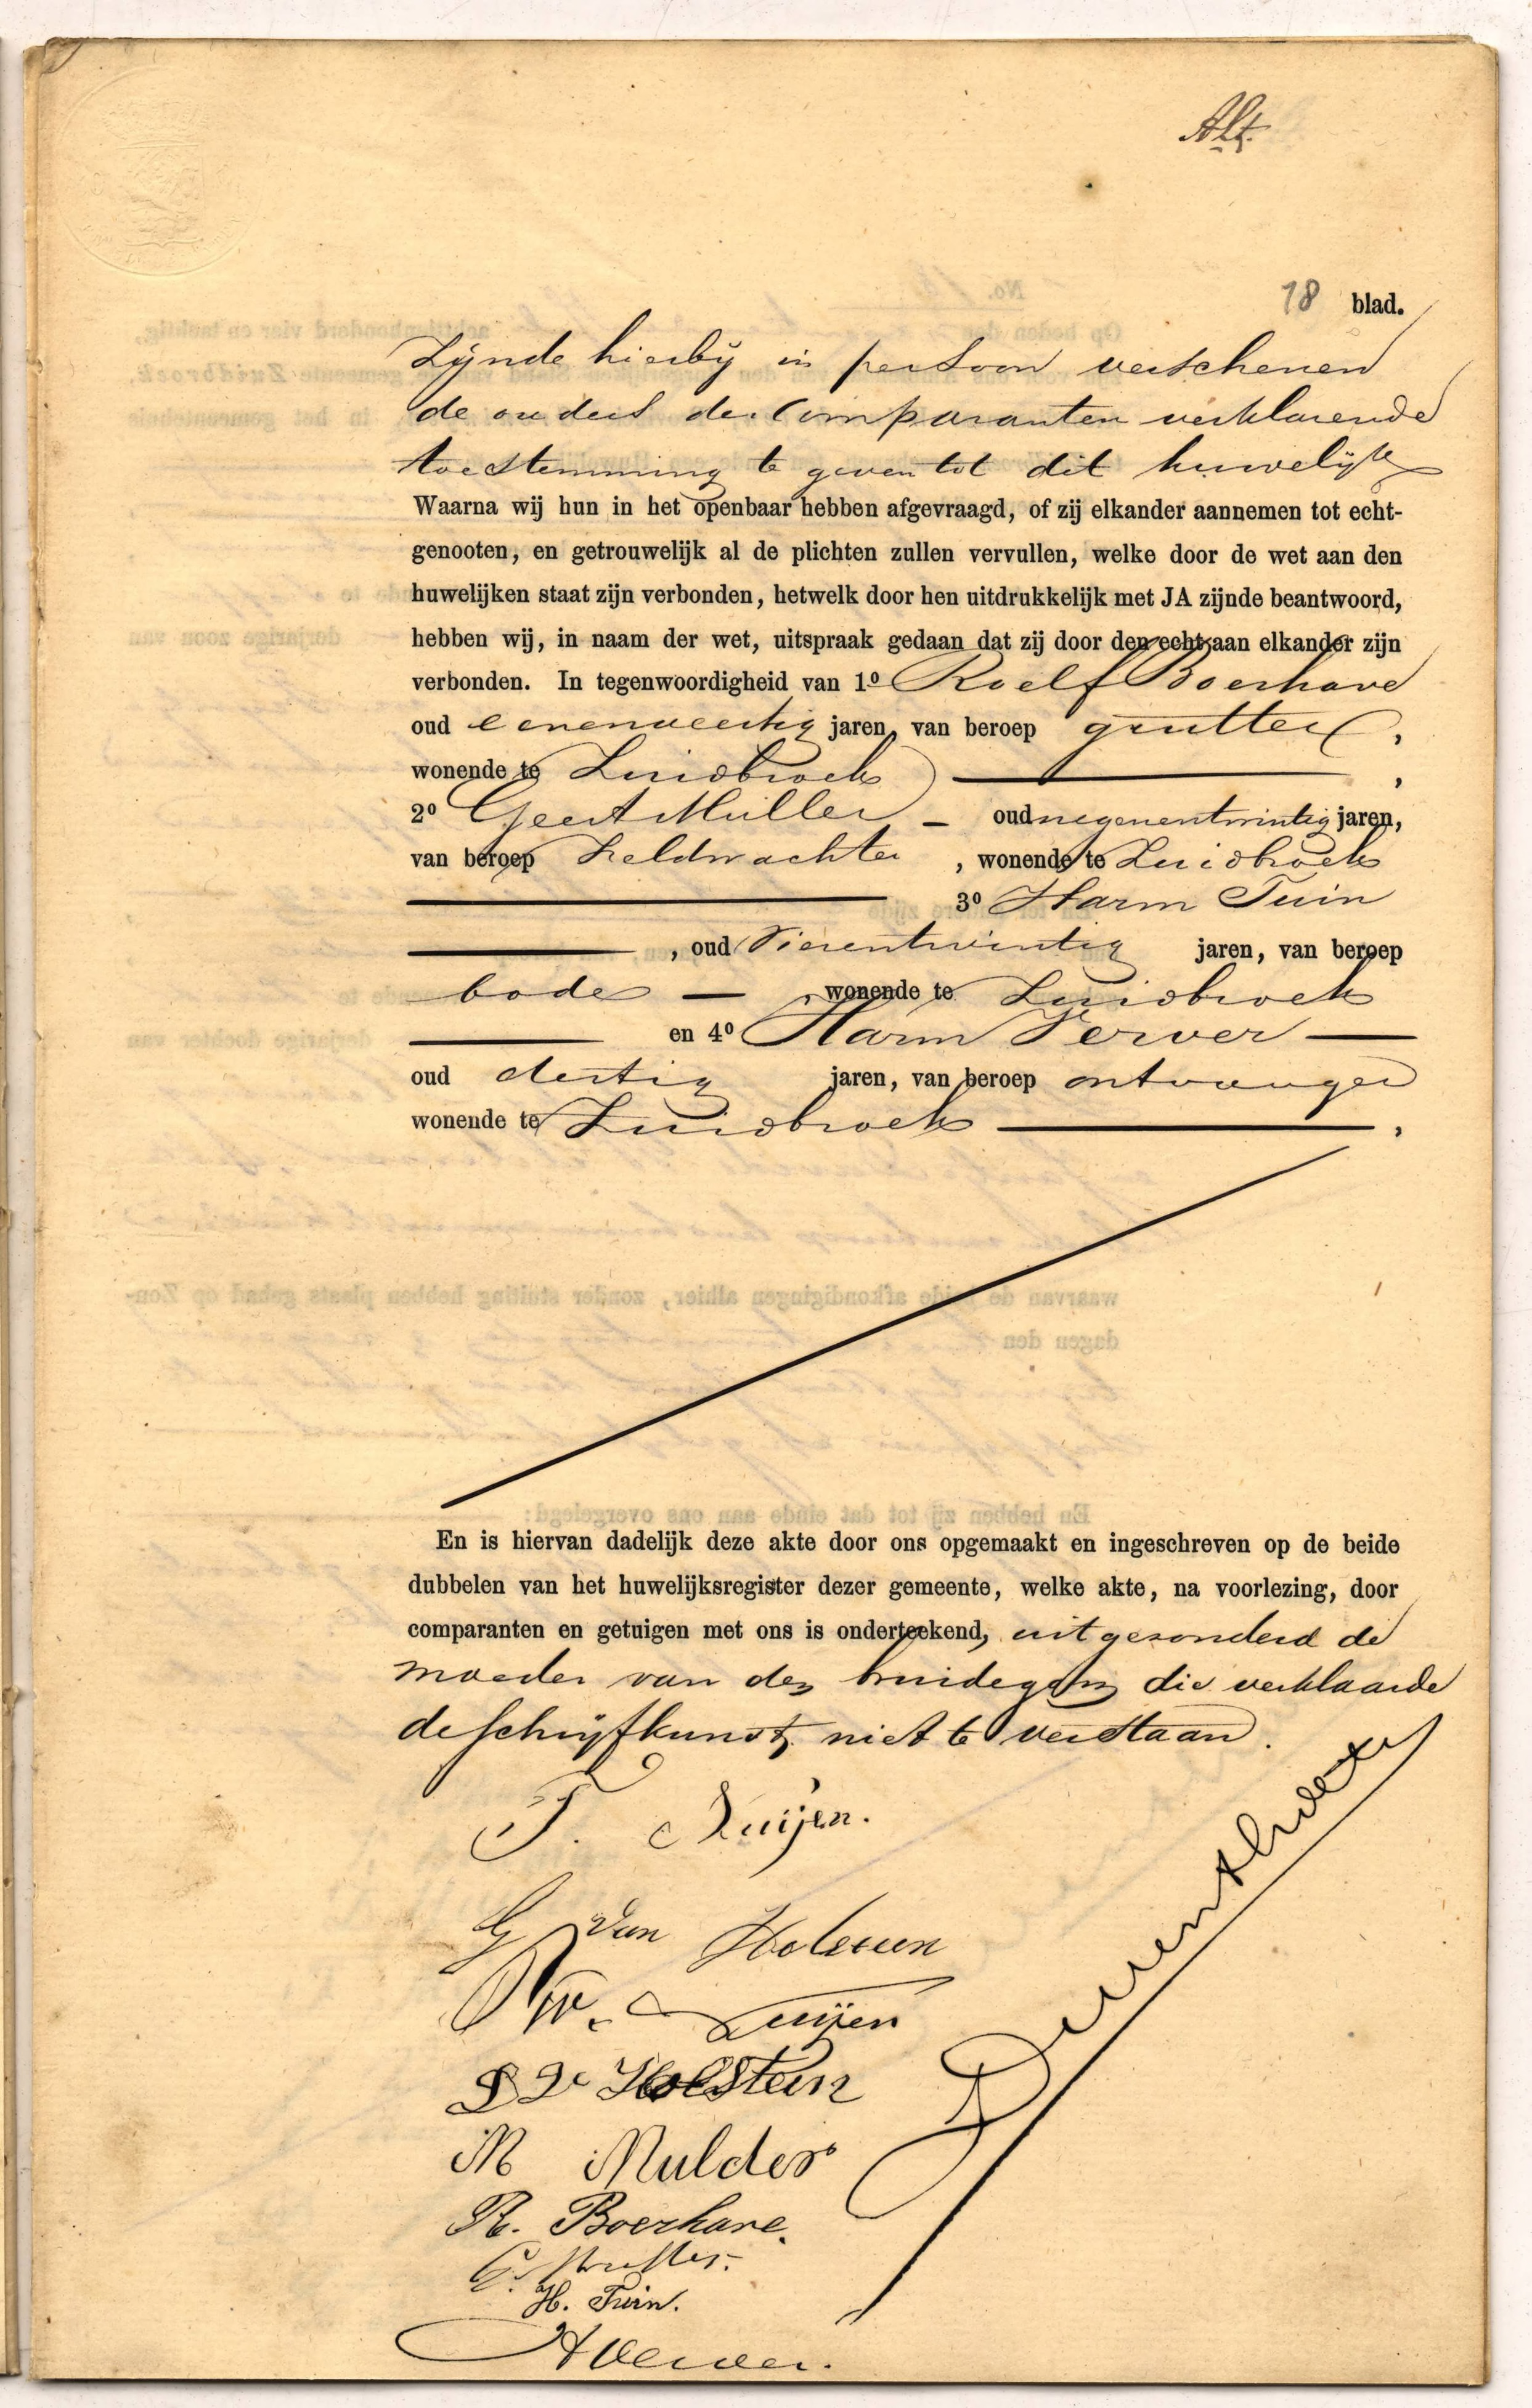 Alt.
18 blad.
Zijnde hierbij in persoon verschenen
de ouders der Comparanten verklarende
toestemming te geven tot dit huwelijk
Waarna wij hun in het openbaar hebben afgevraagd, of zij elkander aannemen tot echt-
genooten, en getrouwelijk al de plichten zullen vervullen, welke door de wet aan den
huwelijken staat zijn verbonden, hetwelk door hen uitdrukkelijk met JA zijnde beantwoord,
hebben wij, in naam der wet, uitspraak gedaan dat zij door den echt aan elkander zijn
verbonden. In tegenwoordigheid van 1º Roelf Boerhave
oud eenenveertig jaren, van beroep grutter,
wonende te Zuidbroek,
2º Geert Müller — oud negenentwintig jaren,
van beroep veldwachter, wonende te Zuidbroek
3º Harm Tuin
, oud vierentwintig jaren, van beroep
bode — wonende te Zuidbroek
en 4º Harm Verver —
oud dertig jaren, van beroep ontvanger
wonende te Zuidbroek,
En is hiervan dadelijk deze akte door ons opgemaakt en ingeschreven op de beide
dubbelen van het huwelijksregister dezer gemeente, welke akte, na voorlezing, door
comparanten en getuigen met ons is onderteekend, uitgezonderd de
moeder van den bruidegom die verklaarde
de schrijfkunst niet te verstaan.
T. Kuijen.
G van Holsteen
W. Luijen
Holstein
M Mulder
R. Boerhave.
G. Muller.
H. Tuin.
HVerver.